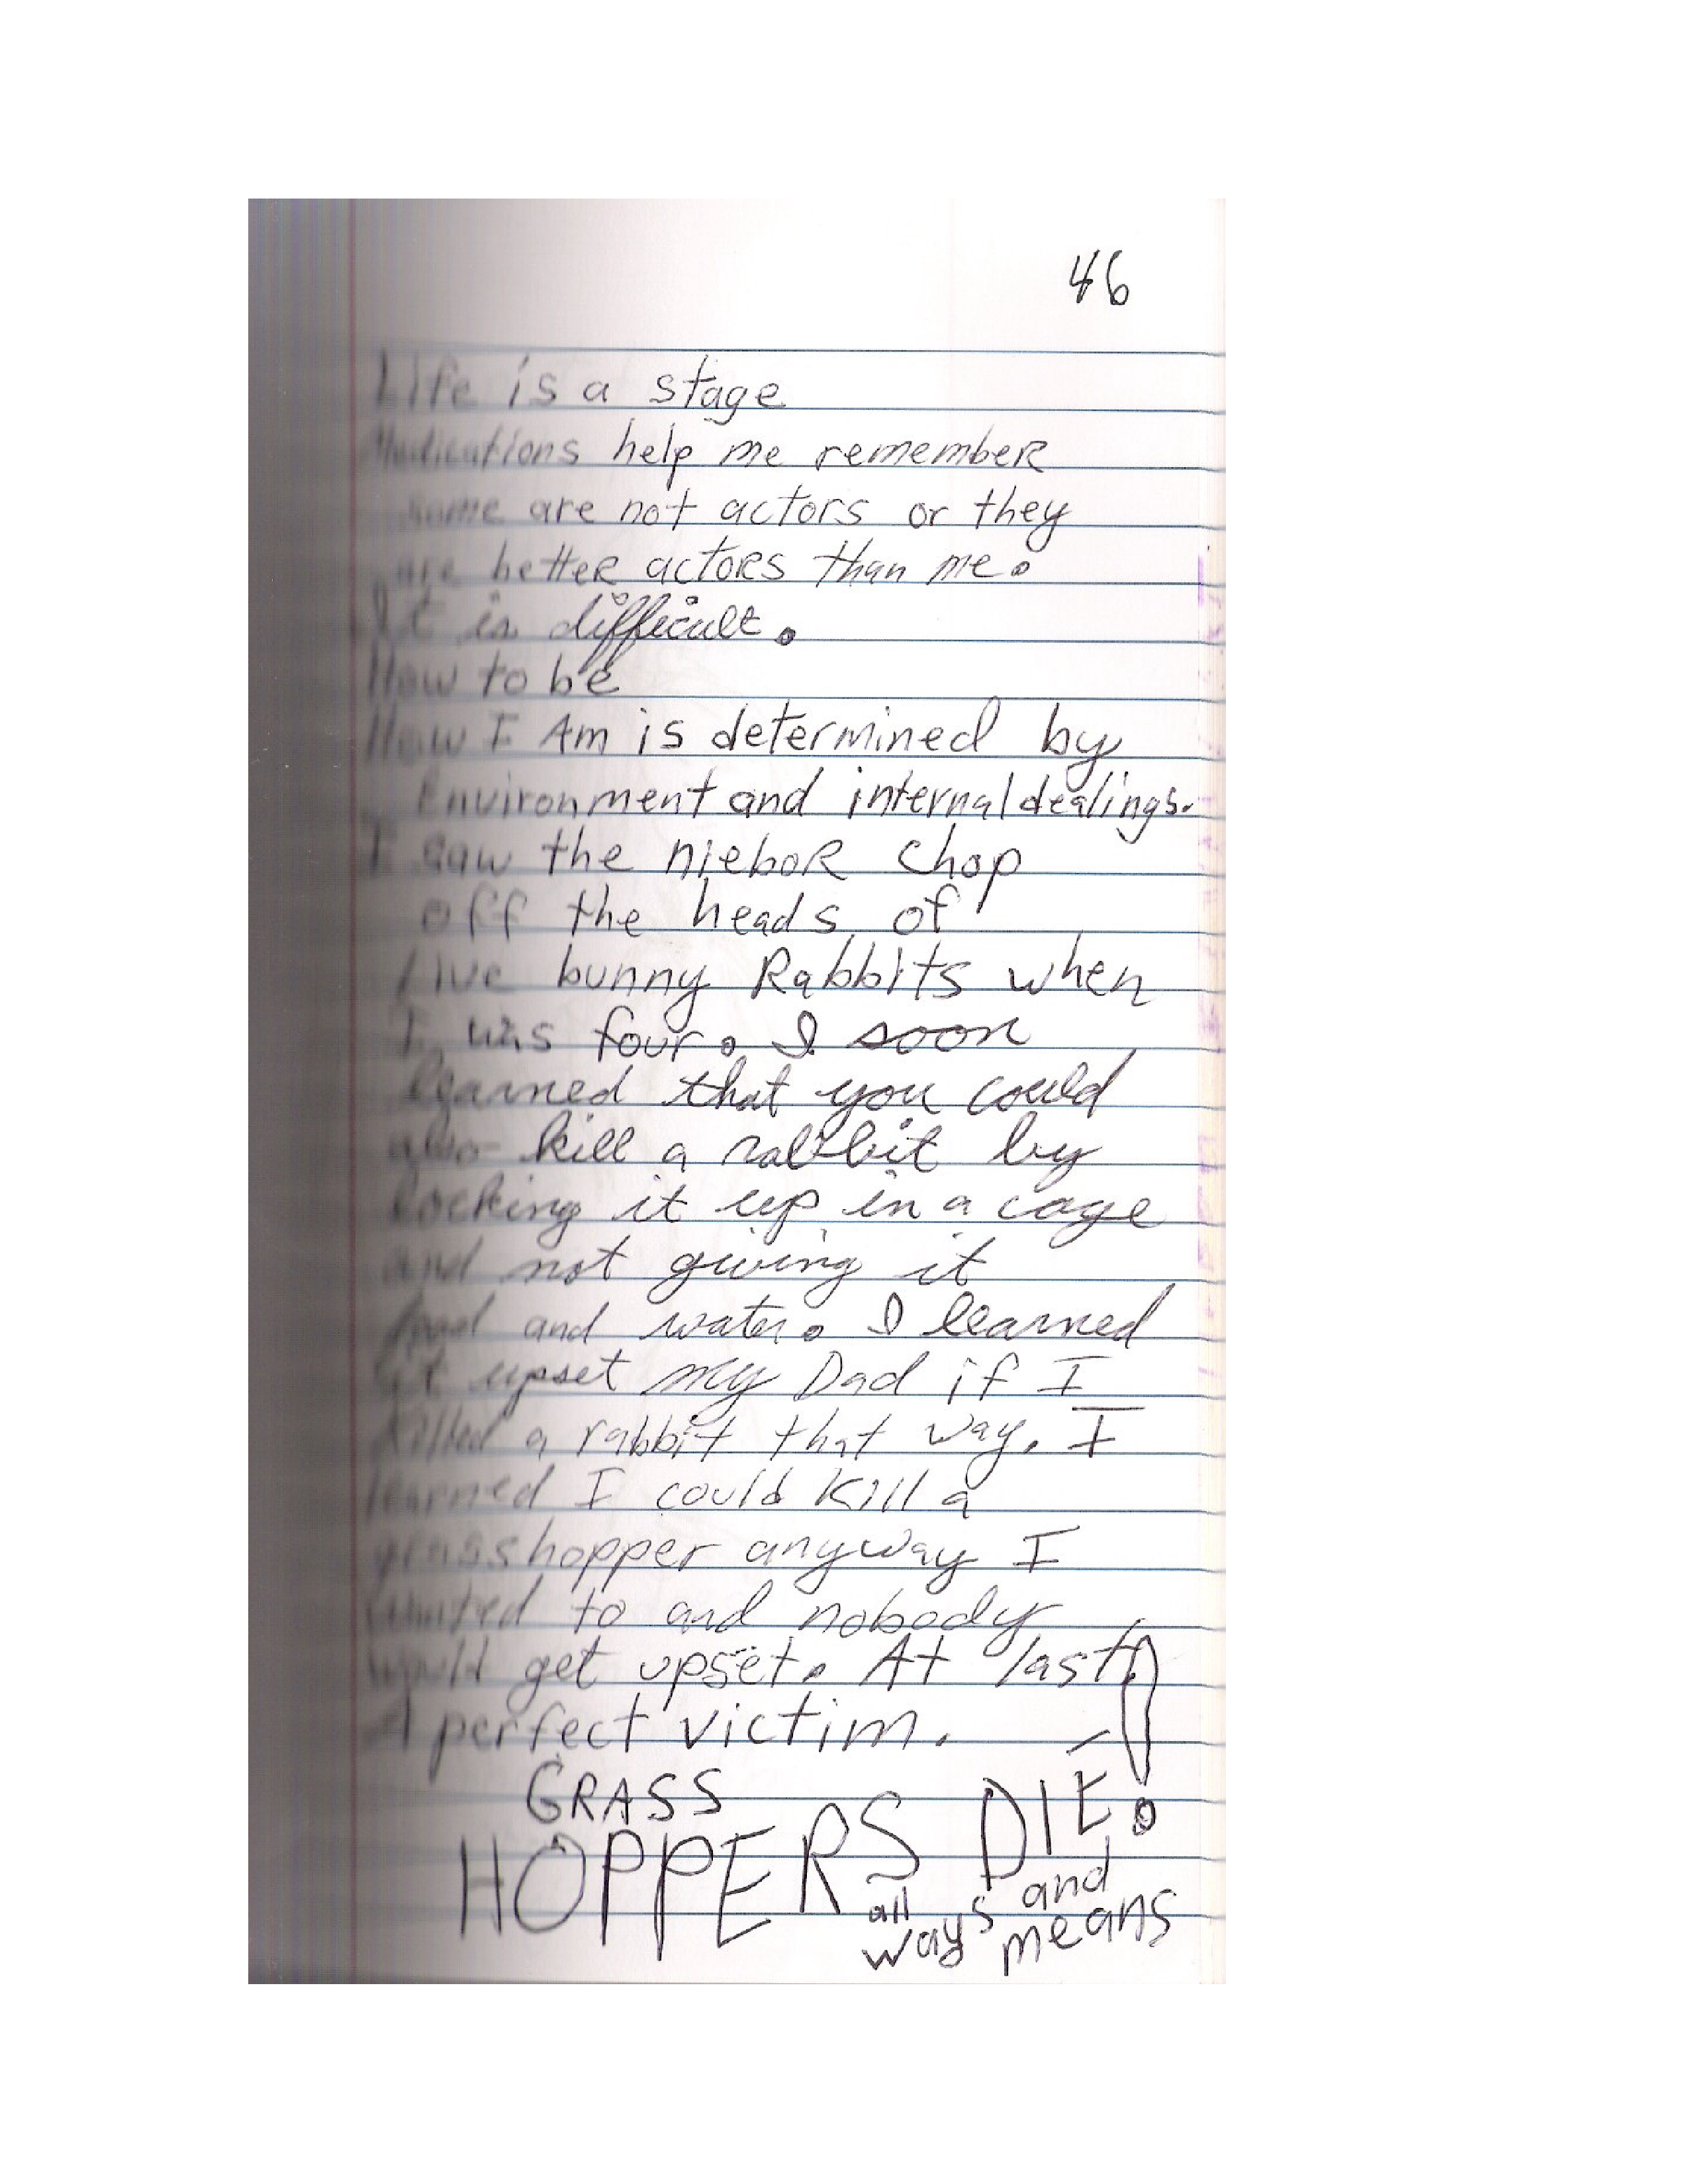 46
Life is a stage
Medications help me remember
some are not actors or they
are better actors than me.
It is difficult.
How to be
How I Am is determined by
Environment and internal dealings.
I saw the niebor chop
off the heads of
Live bunny Rabbits when
I was four. I soon
learned that you could
also kill a rabbit by
locking it up in a cage
and not giving it
food and water. I learned
it upset my Dad if I
killed a rabbit that way. I
learned I could kill a
grasshopper anyway I
wanted to and nobody
would get upset. At last!
A perfect victim.
GRASS
HOPPERS DIE!
all ways and means